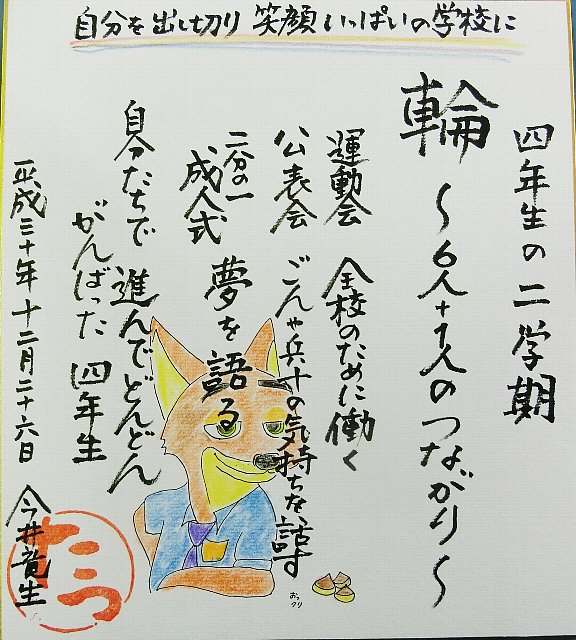 自分を出し切り 笑顔いっぱいの学校に
四年生の二学期
輪
〜6人+1人のつながり〜
運動会 全校のために働く
公表会 ごんや兵十の気持ちを、話す
二分の一
成人式 夢を語る
自分たちで 進んでどんどん
がんばった 四年生
平成三十年 十二月二十六日 今井竜生
たつ